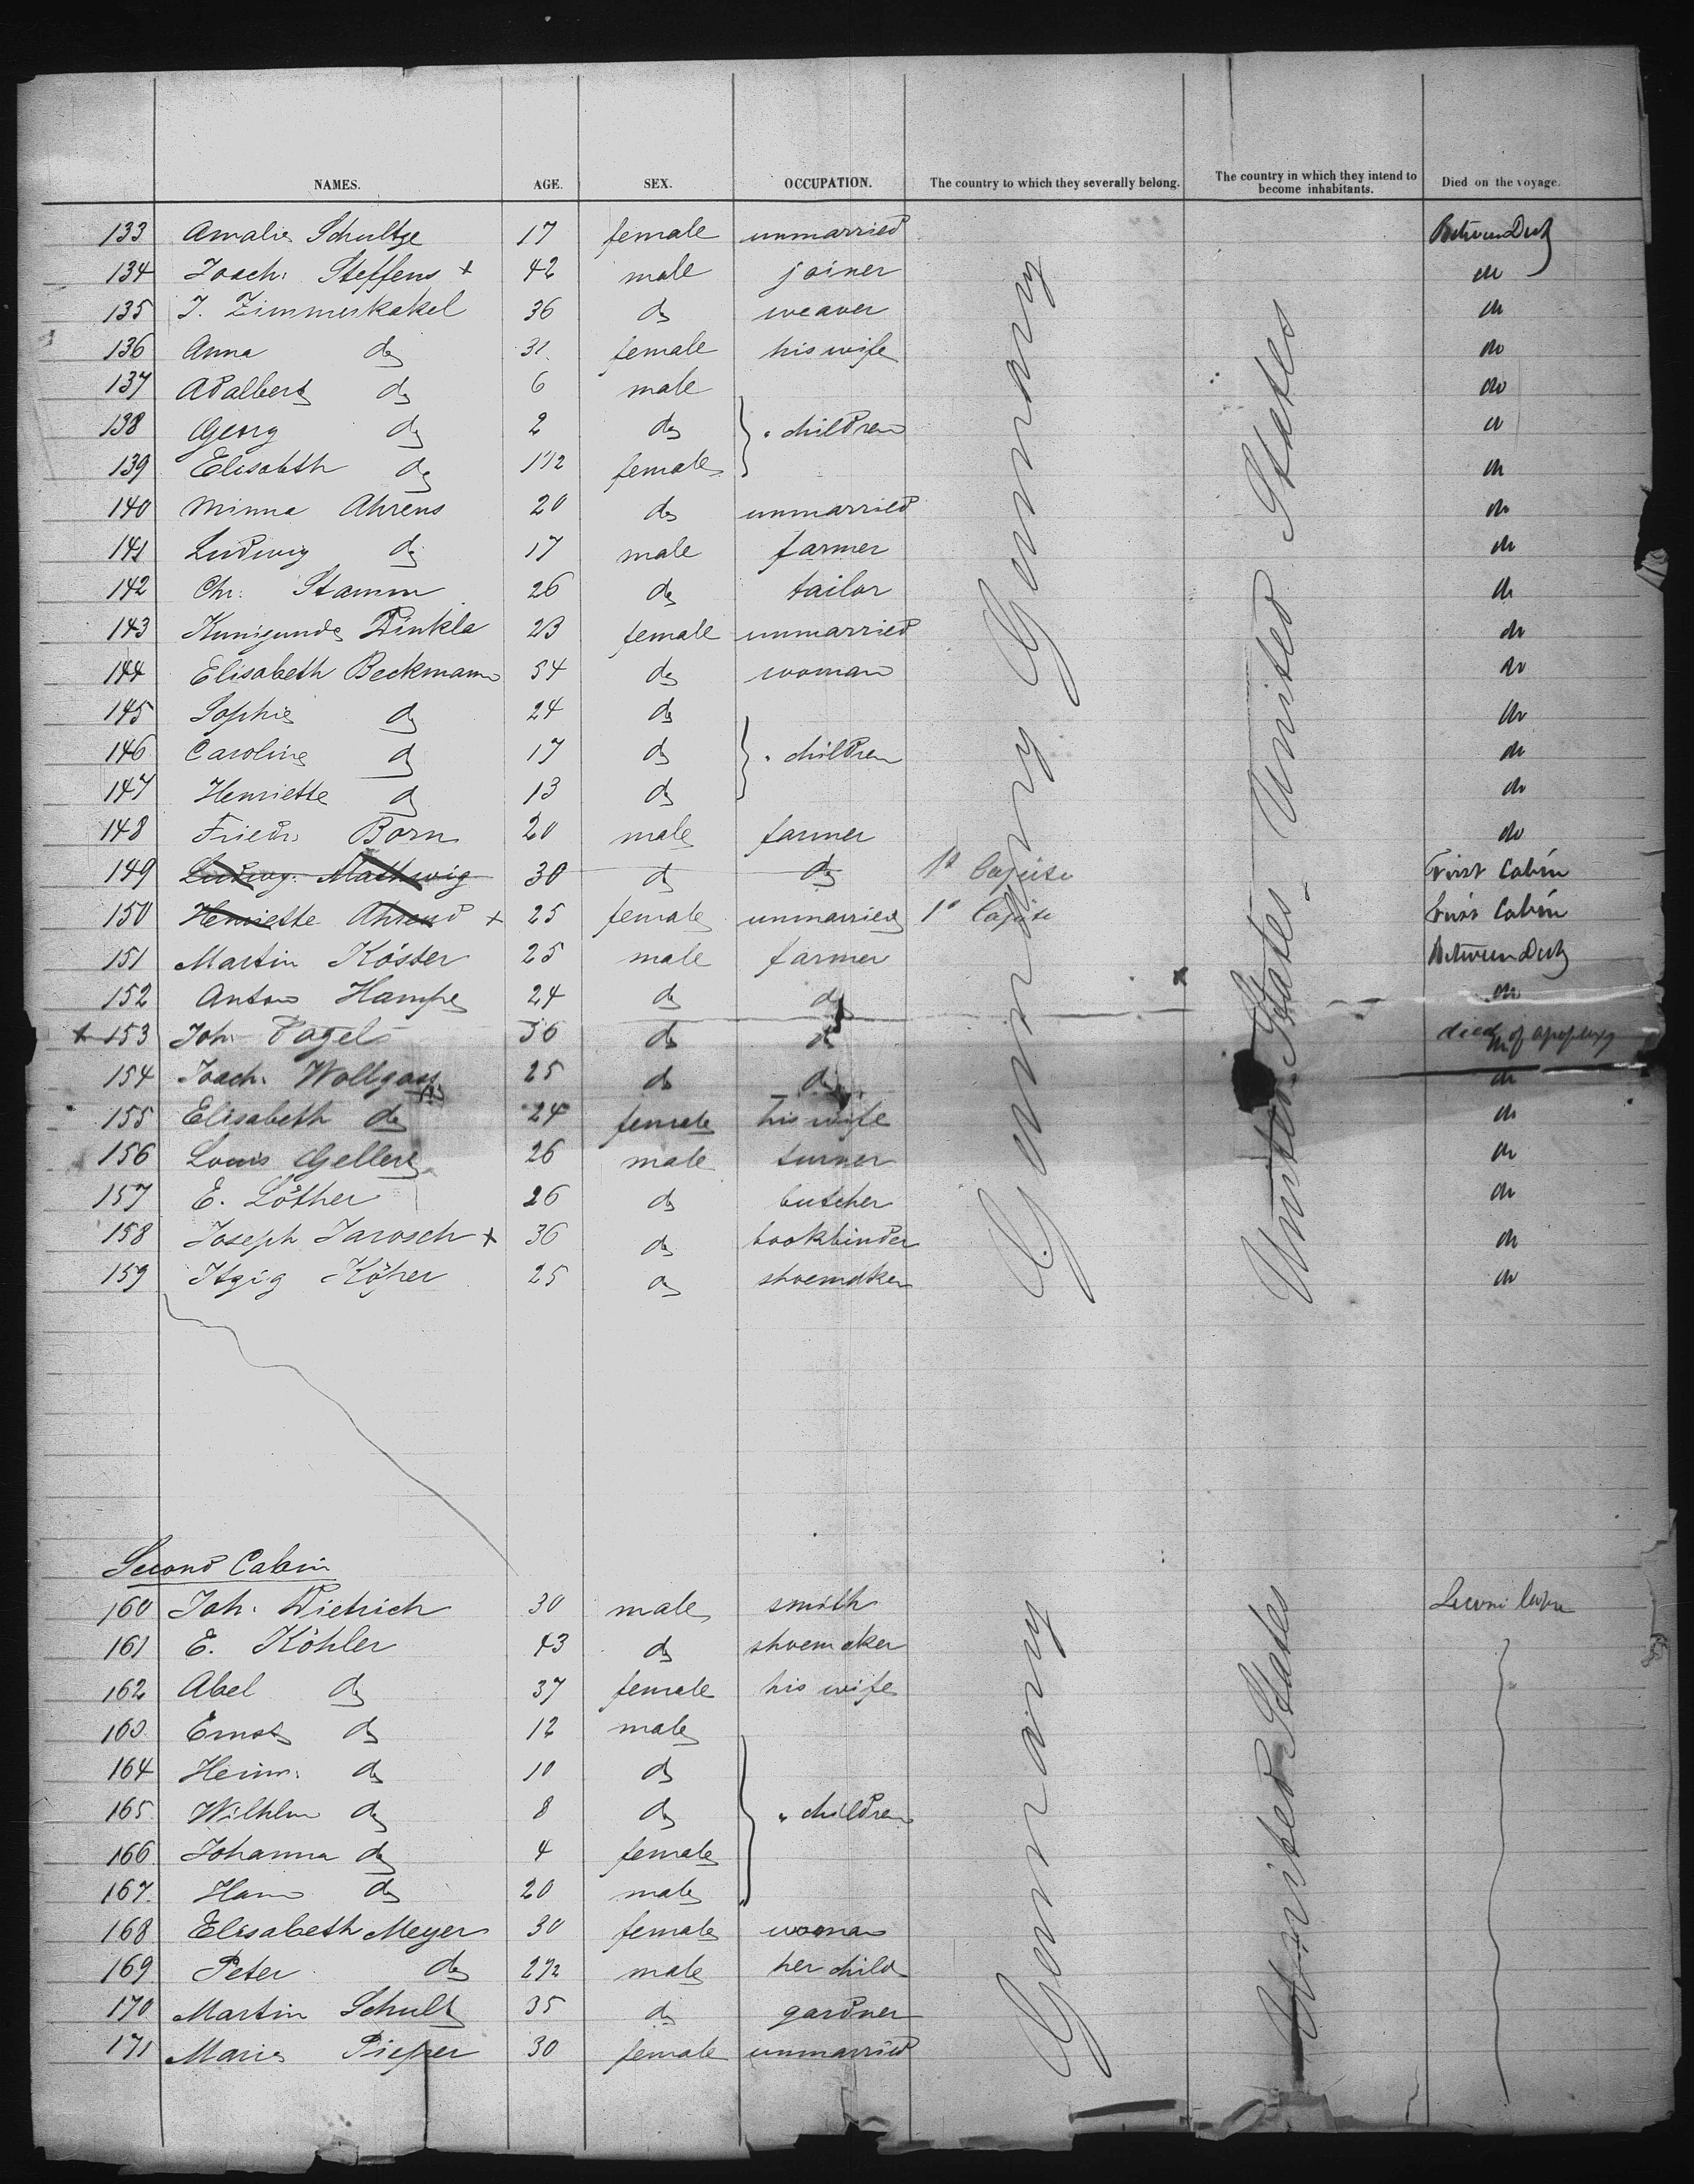 NAMES. AGE. SEX. OCCUPATION. The country to which they severally belong. The country in which they intend to become inhabitants. Died on the voyage.
133 Amalie Schultze 17 female unmarried Between Deck
134 Joach. Steffens + 42 male joiner do
135 J. Zimmerkakel 36 do weaver do
136 Anna do 31 female his wife do
137 Adalbert do 6 male do
138 Georg do 2 do " children do
139 Elisabeth do 1 1/2 female do
140 Minna Ahrens 20 do unmarried do
141 Ludwig do 17 male farmer do
142 Chr. Stamm 26 do tailor do
143 Kunigunde Dinkla 23 female unmarried do
144 Elisabeth Beckmann 54 do woman do
145 Sophie do 24 do do
146 Caroline do 17 do " children do
147 Henriette do 13 do do
148 Friedr. Born 20 male farmer do
149 Ludwig Mathwig 30 do do 1st Cajüte First Cabin
150 Henriette Ahrend + 25 female unmarried 1st Cajüte First Cabin
151 Martin Köster 25 male farmer Between Deck
152 Anton Hampe 24 do do do
+ 153 Joh. Pagels 56 do do died of apoplexy
154 Joach. Wollgast 25 do do do
155 Elisabeth do 24 female his wife do
156 Louis Gellert 26 male turner do
157 E. Löther 26 do butcher do
158 Joseph Jarosch + 36 do bookbinder do
159 Itzig Köher 25 do shoemaker do
Germany Germany
United States United States
Second Cabin
160 Joh. Dietrich 30 male smith Second Cabin
161 E. Köhler 43 do shoemaker
162 Abel do 37 female his wife
163 Ernst do 12 male
164 Heinr. do 10 do
165 Wilhelm do 8 do " children
166 Johanna do 4 female
167 Hans do 20 male
168 Elisabeth Meyer 30 female woman
169 Peter do 2 1/2 male her child
170 Martin Schult 35 do gardner
171 Marie Pieper 30 female unmarried
Germany
United States